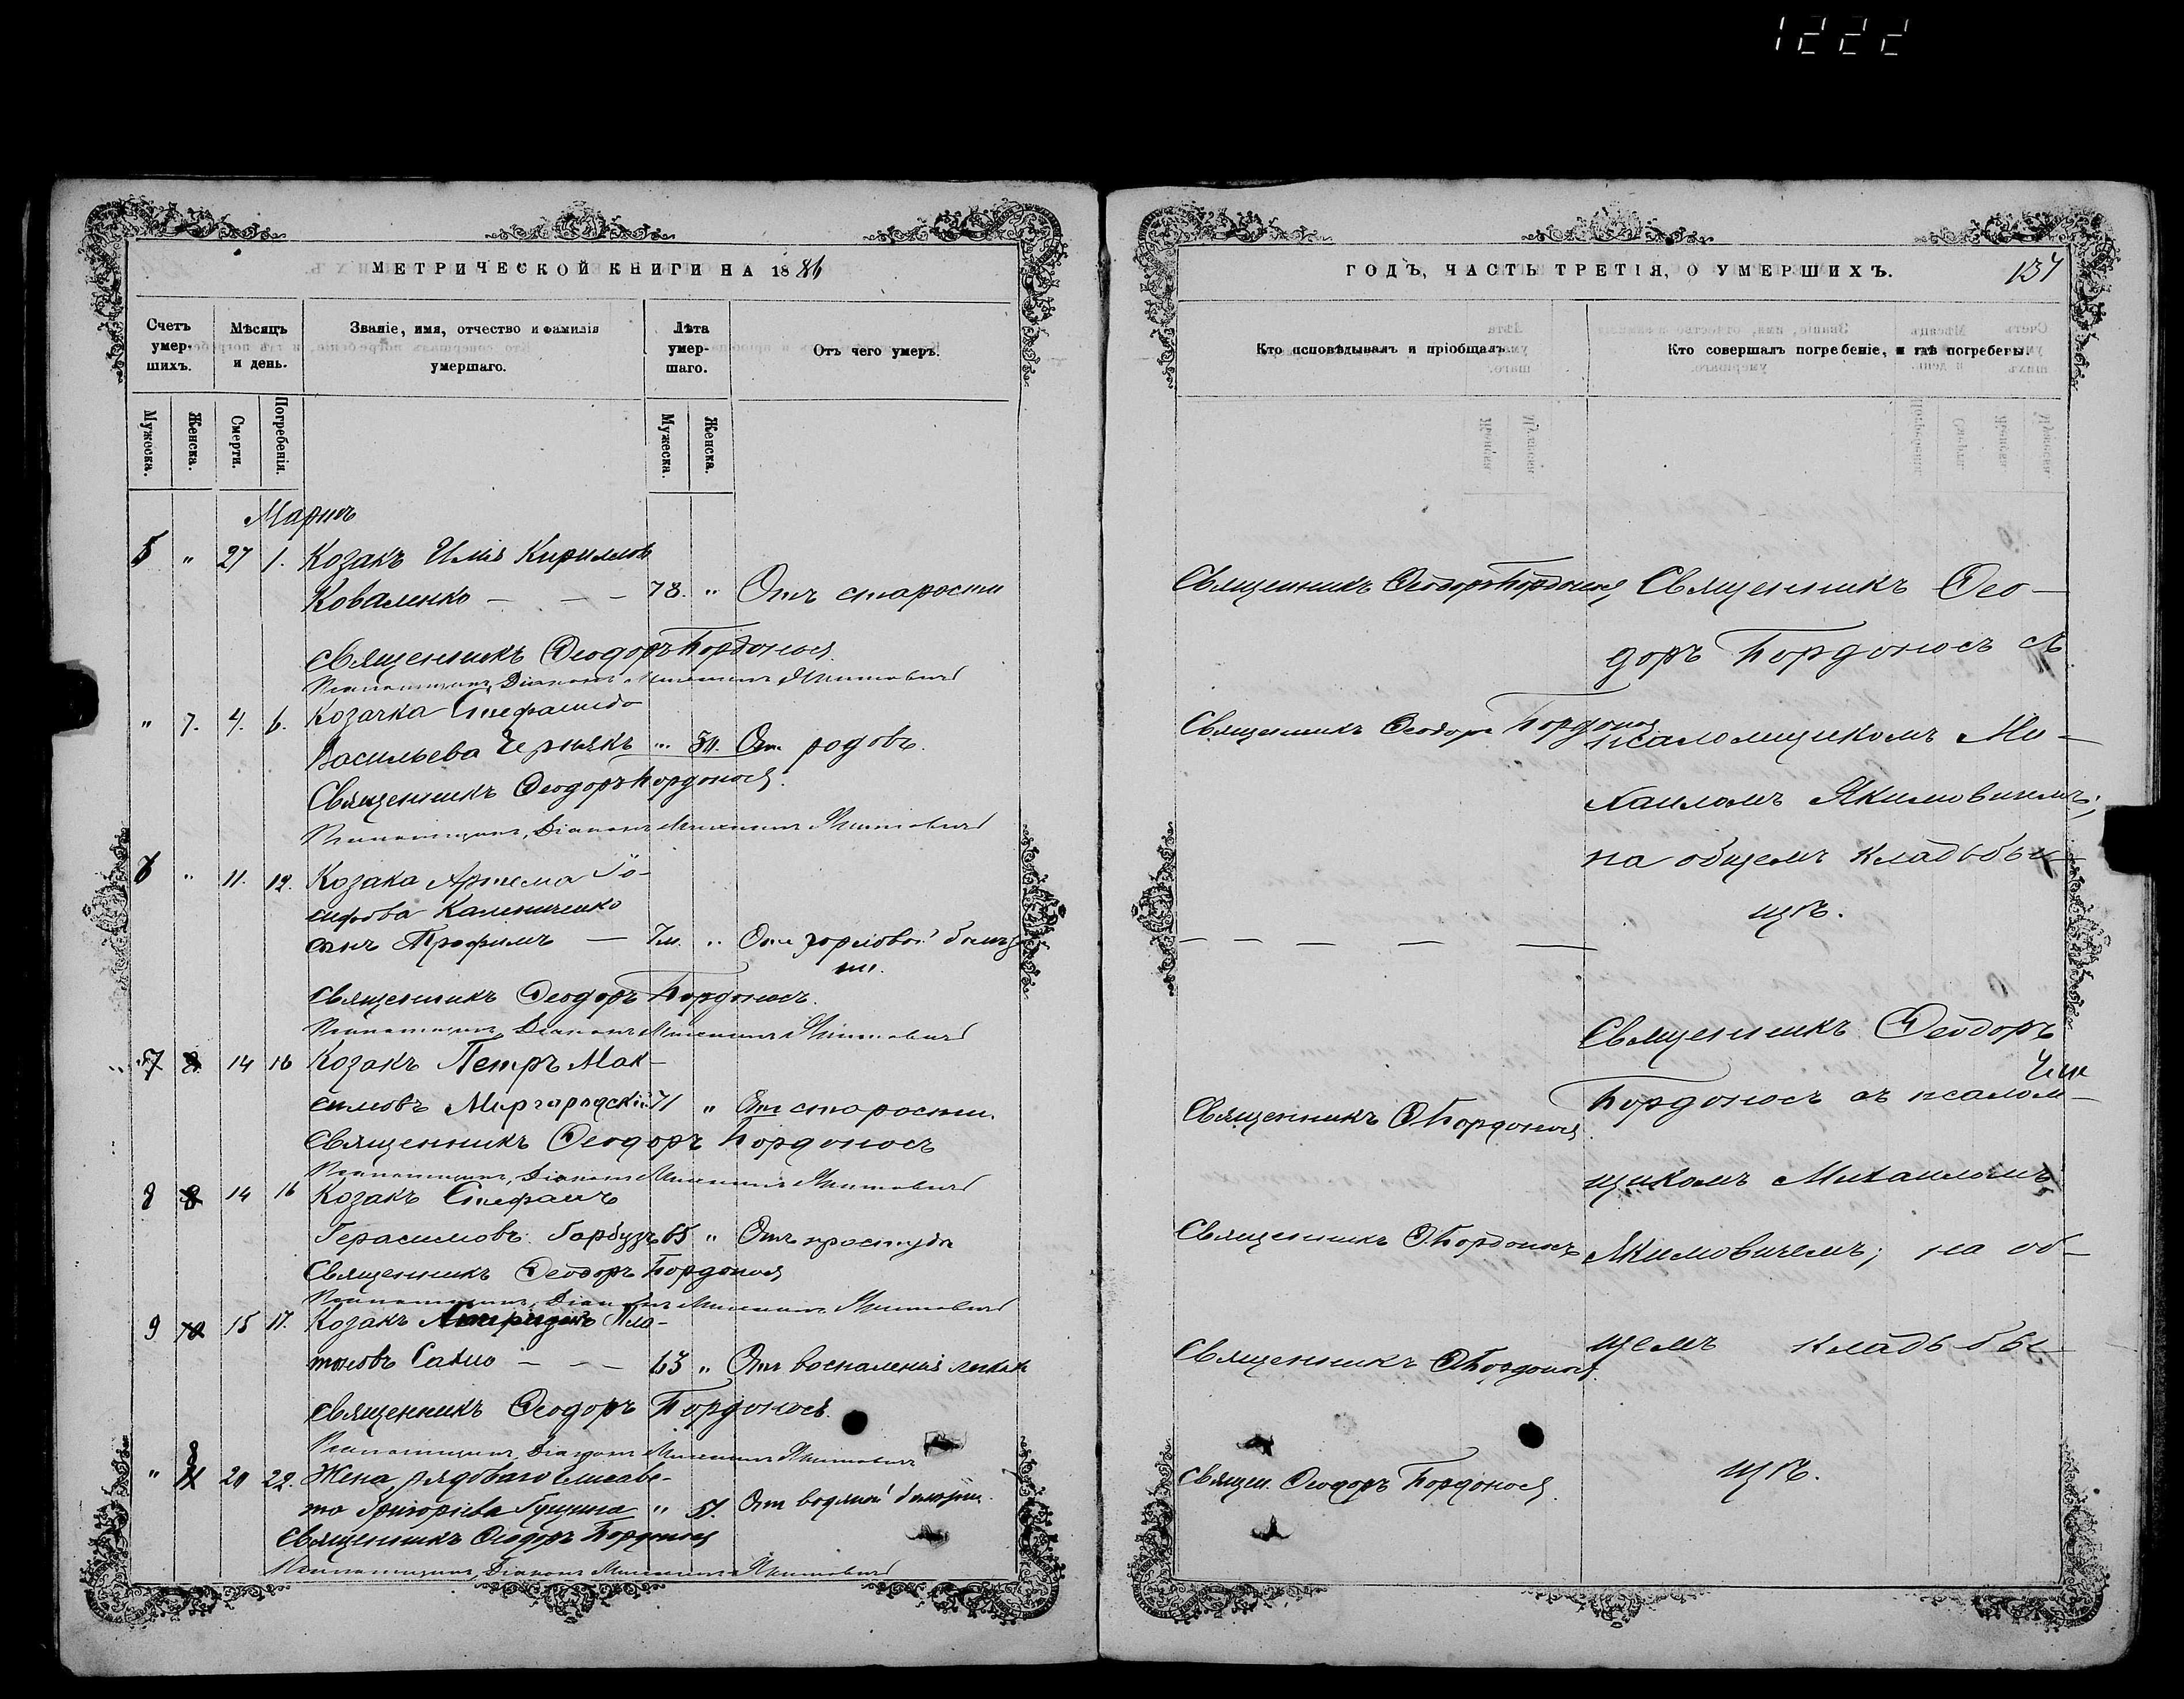 1222
МЕТРИЧЕСКОЙ КНИГИ НА 1886
Счетъ умер-шихъ.
Мѣсяцъ и день.
Званіе, имя, отчество и фамилія умершаго.
Лѣта умер-шаго.
Отъ чего умеръ.
Мужеска.
Женска.
Смерти.
Погребенія.
Мужеска.
Женска.
Мартъ
5 " 27 1. Козакъ Илія Кирилловъ
Коваленко — — — 78. " Отъ старости
Священникъ Ѳеодоръ Бордоносъ
Псаломщикъ, Діаконъ Михаилъ Якимовичъ
" 7. 4. 6. Козачка Стефанида
Васильева Чернякъ " 50. Отъ родовъ.
Священникъ Ѳеодоръ Бордоносъ.
Псаломщикъ, Діаконъ Михаилъ Якимовичъ
6 " 11. 12. Козака Артема Іо-
сифова Калениченко
сынъ Трофимъ — 7м. " Отъ горловой болѣз
ни.
Священникъ Ѳеодоръ Бордоносъ.
Псаломщикъ, Діаконъ Михаилъ Якимовичъ
7 8 14 16 Козакъ Петръ Мак-
симовъ Миргородскій 71 " Отъ старости.
Священникъ Ѳеодоръ Бордоносъ
Псаломщикъ, Діаконъ Михаилъ Якимовичъ
8 14 16 Козакъ Стефанъ
Герасимовъ Гарбузъ 65 " Отъ простуды
Священникъ Ѳеодоръ Бордоносъ
Псаломщикъ, Діаконъ Михаилъ Якимовичъ
9 10 15 17. Козакъ Пла-
тоновъ Сахно — — — 63 " Отъ воспаленія легкихъ
Священникъ Ѳеодоръ Бордоносъ.
Псаломщикъ, Діаконъ Михаилъ Якимовичъ
8
" 20 22. Жена рядоваго Елисаве-
та Григорьева " 51. Отъ водяной болѣзни.
Священникъ Ѳеодоръ Бордоносъ
Псаломщикъ, Діаконъ Михаилъ Якимовичъ
ГОДЪ, ЧАСТЬ ТРЕТІЯ, О УМЕРШИХЪ.
137
Кто исповѣдывалъ и пріобщалъ.
Кто совершалъ погребеніе, и гдѣ погребены.
Священникъ Ѳеодоръ Бордоносъ
Священникъ Ѳеодоръ Бордоносъ
— — — — —
Священникъ Ѳ. Бордоносъ.
Священникъ Ѳ. Бордоносъ
Священникъ Ѳ. Бордоносъ.
Священ. Ѳеодоръ Бордоносъ.
Священникъ Ѳео-
доръ Бордоносъ съ
псаломщикомъ Ми-
хаиломъ Якимовичемъ;
на общемъ кладьбы-
щѣ.
Священникъ Ѳеодоръ
Бордоносъ съ псалом-
щикомъ Михаиломъ
Якимовичемъ; на об-
щемъ кладьбы-
щѣ.